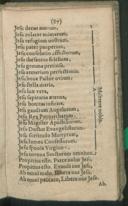 (87)
Jesu decus morum,
Jesu zelator animarum,
Jesu refugium nostrum,
Jesu pater pauperum,
Jesu consolatio afflictorum,
Jesu thesaurus fidelium,
Jesu gemma pretiosa,
Jesu armarium perfectionis,
Jesu bone Pastor ovium,
Jesu stella maris,
Jesu lux vera,
Jesu sapientia æterna,
Jesu bonitas infinita,
Jesu gaudium Angelorum,
Jesu Rex Patriarcharum,
Jesu Magister Apostolorum,
Jesu Doctor Evangelistarum,
Jesu fortitudo Martyrum,
Jesu lumen Confessorum,
Jesu sponse Virginum,
Jesu corona Sanctorum omnium,
Propitius esto. Parce nobis Jesu.
Propitius esto. Exaudi nos Jesu.
Ab omni malo, libera nos Jesu.
Ab omni peccato, Libera nos Jesu.
Ab
Miserere nobis.